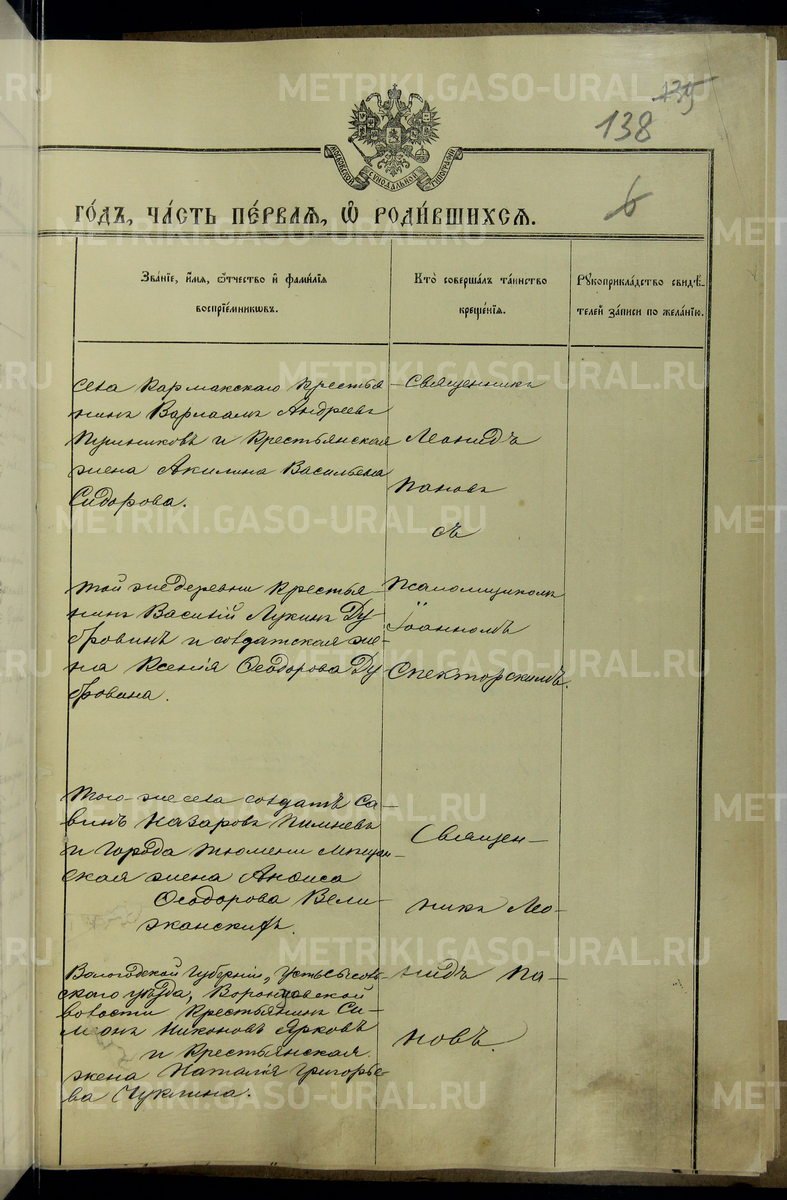 135
138
МОСКОВСКОЙ СѴНОДАЛЬНОЙ ТИПОГРАФІИ
6
ГО́ДЪ, ЧА́СТЬ ПЕ́РВАѦ, Ѡ҆ РОДИ́ВШИХСѦ.
Зва́нїе, и҆́мѧ, ѻ҆́тчество и҆ фами́лїѧ
воспрїе́мникѡвъ.
Кто̀ соверша́лъ та́инство
креще́нїѧ.
Рꙋкоприкла́дство свидѣ́-
телей за́писи по жела́нїю.
села Кармакскаго крестья-
нинъ Варлаамъ Андреевъ
и крестьянская
жена Акилина Васильева
Сидорова.
Священникъ
Леонидъ
Пановъ
съ
той же деревни крестья-
нинъ Василій Лукинъ Ду-
бровинъ и солдатская же-
на Ксенія Ѳеодорова Ду-
бровина.
Псаломщикомъ
Іоанномъ
Спекторскимъ.
того-же села солдатъ Са-
винъ Назаровъ Пимневъ
и города Тюмени мѣщан-
ская жена Анфиса
Ѳеодорова Вели-
жанскихъ.
Священ-
никъ Лео-
Вологодской губерніи, Устьсысоль-
скаго уѣзда, Воронцовской
волости крестьянинъ Си-
монъ Никоновъ Ярковъ
и крестьянская
жена Наталія Григорье-
ва Чуклина.
нидъ Па-
новъ.
METRIKI.GASO-URAL.RU